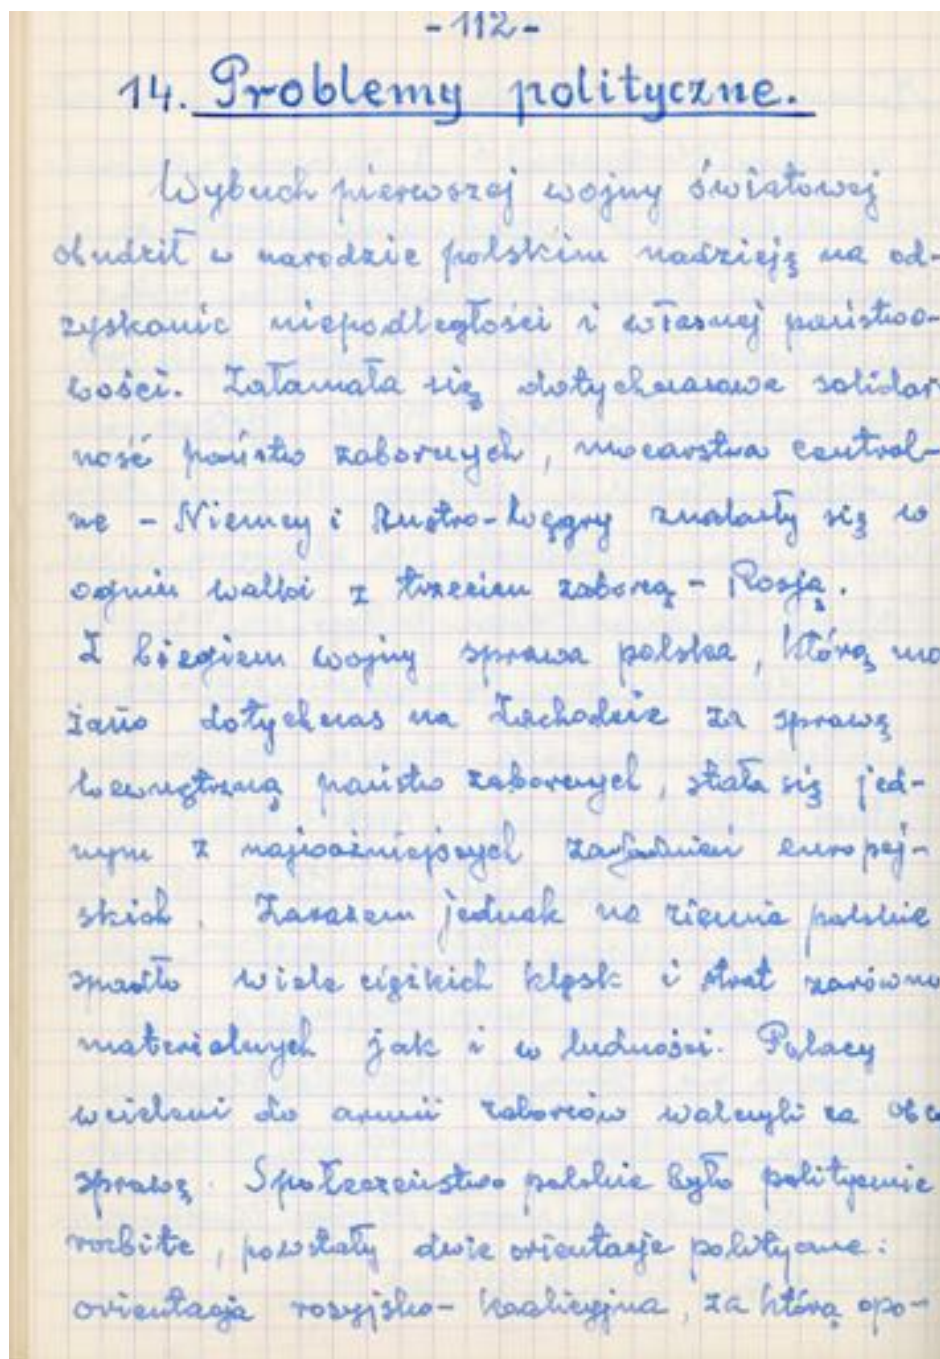 - 112 -
14. Problemy polityczne.
Wybuch pierwszej wojny światowej
obudził w narodzie polskim nadzieję na od-
zyskanie niepodległości i własnej państwo-
wości. Załamała się dotychczasowa solidar
ność państw zaborczych, mocarstwa central-
ne - Niemcy i Austro-Węgry znalazły się w
ogniu walki z trzecim zaborcą - Rosją.
Z biegiem wojny sprawa polska, którą uwa
żano dotychczas na Zachodzie za sprawę
wewnętrzną państw zaborczych, stała się jed-
nym z najważniejszych zagadnień europej-
skich. Zarazem jednak na ziemie polskie
spadło wiele ciężkich klęsk i strat zarówno
materialnych jak i w ludności. Polacy
wcieleni do armii zaborców walczyli za obcą
sprawę. Społeczeństwo polskie było politycznie
rozbite, powstały dwie orientacje polityczne:
orientacja rosyjsko-koalicyjna, za którą opo-